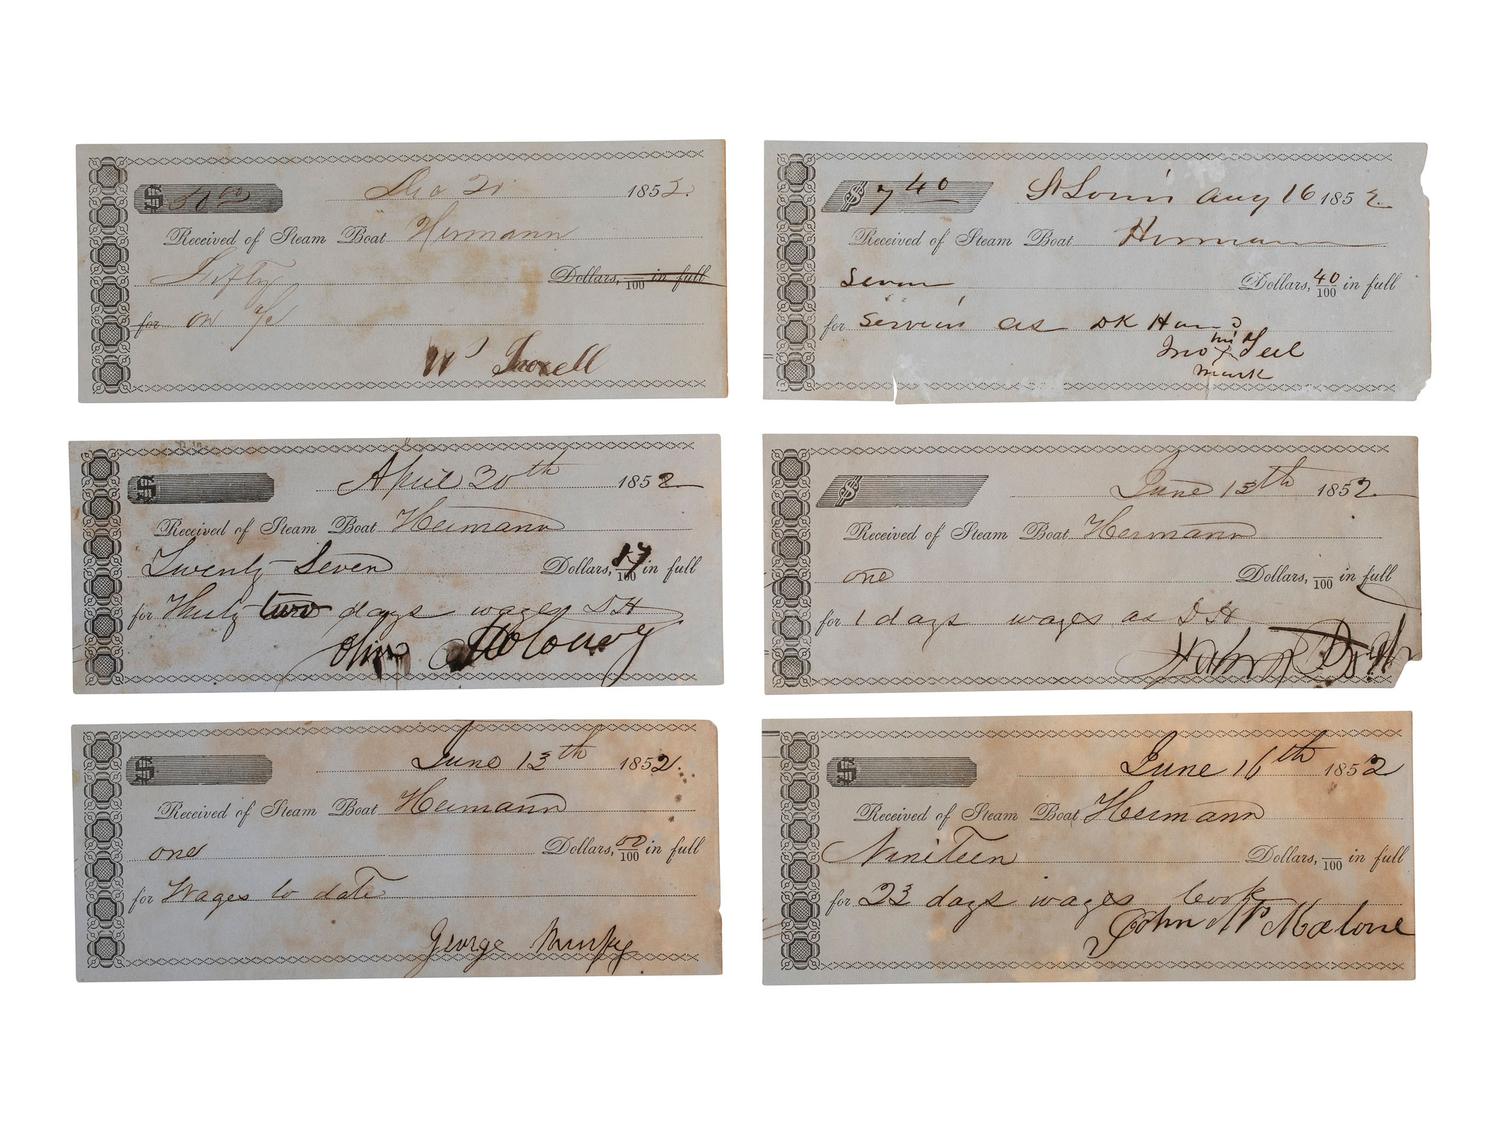 $ 50 00 Dec 21 1852
Received of Steam Boat Hermann
Fifty Dollars, /100 in full
for on a/c
W Lowell
$ 7 40 St Louis Aug 16 1852
Received of Steam Boat Hermann
Seven Dollars, 40/100 in full
for Services as DK Hand
his
Jno X Teel
mark
$ April 20th 1852
Received of Steam Boat Hermann
Twenty Seven Dollars, 17/100 in full
for Thirty two days wages DH
$ June 13th 1852
Received of Steam Boat Hermann
one Dollars, /100 in full
for 1 days wages as DH
$ June 13th 1852.
Received of Steam Boat Hermann
one Dollars, 00/100 in full
for Wages to date
George
$ June 16th 1852
Received of Steam Boat Hermann
Nineteen Dollars, /100 in full
for 23 days wages Cook
John W Malone